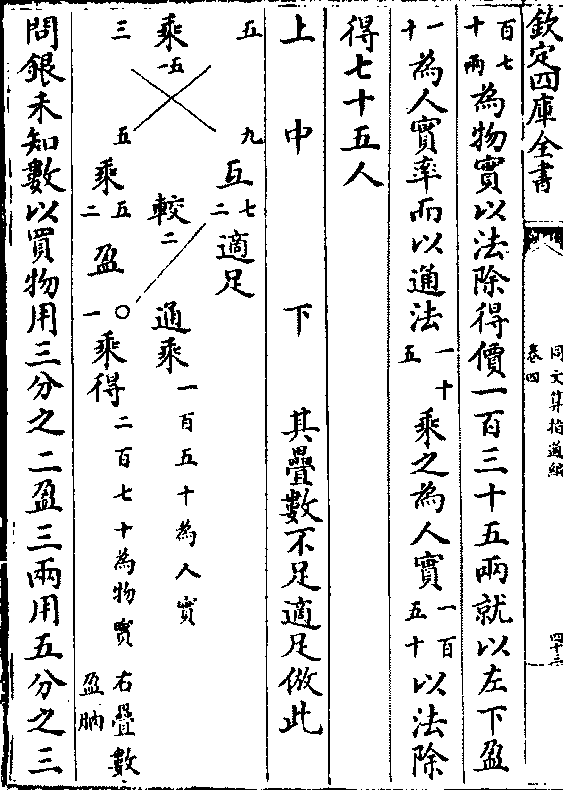 欽定四庫全書
同文算指通編
卷四
四十三
百七
十兩
為物實以法除得價一百三十五兩就以左下盈
一
十
為人實率而以通法
一十
五
乘之為人實
一百
五十
以法除
得七十五人
上 中 下 其疊數不足適足倣此
五 九 互 七二 適足
乘 一五 較二 通乘 一百五十為人實
三 五 乘 五二 盈 一〇 乘得 二百七十為物實 右疊數盈朒
問銀未知數以買物用三分之二盈三兩用五分之三